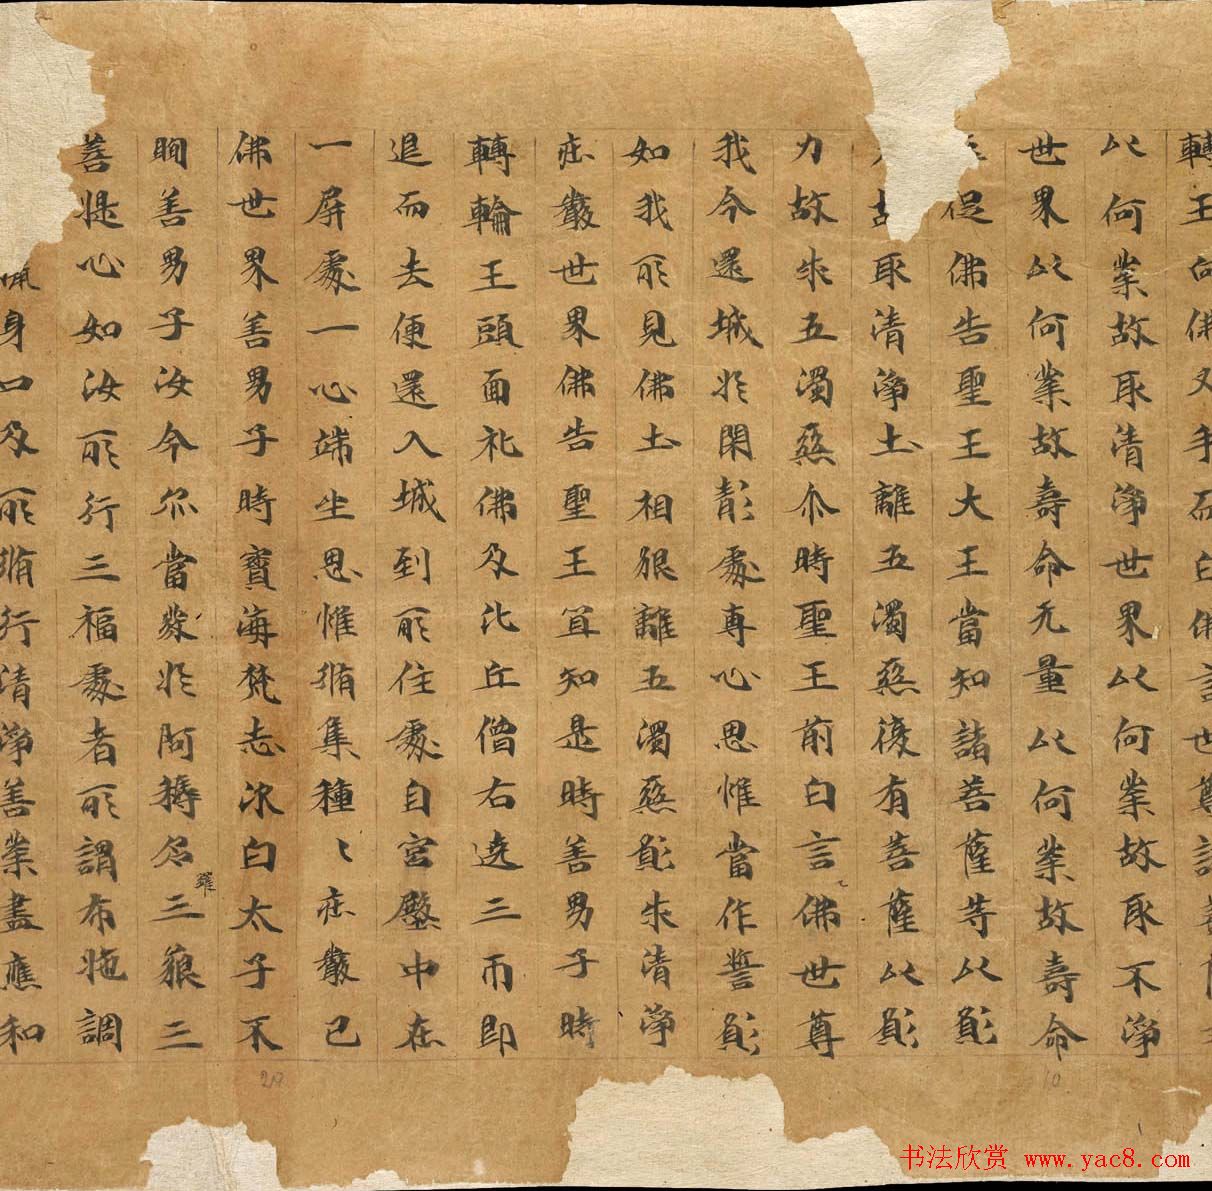 轉王向佛叉手而白佛言世尊諸菩薩
以何業故取清淨世界以何業故取不淨
世界以何業故壽命无量以何業故壽命
促佛告聖王大王當知諸菩薩等以願
故取清淨土離五濁惡復有菩薩以願
力故求五濁惡尒時聖王前白言佛世尊
我今還城於閑靜處專心思惟當作誓願
如我所見佛土相貌離五濁惡願求清淨
庄嚴世界佛告聖王宜知是時善男子時
轉輪王頭面礼佛及比丘僧右遶三匝即
退而去便還入城到所住處自宮殿中在
一屏處一心端坐思惟脩集種〻庄嚴己
佛世界善男子時寶海梵志次白太子不
眴善男子汝今尒當發於阿耨多羅三藐三
菩提心如汝所行三福處者所謂布施調
身口及所脩行清淨善業盡應和
20
10
书法欣赏 www.yac8.com